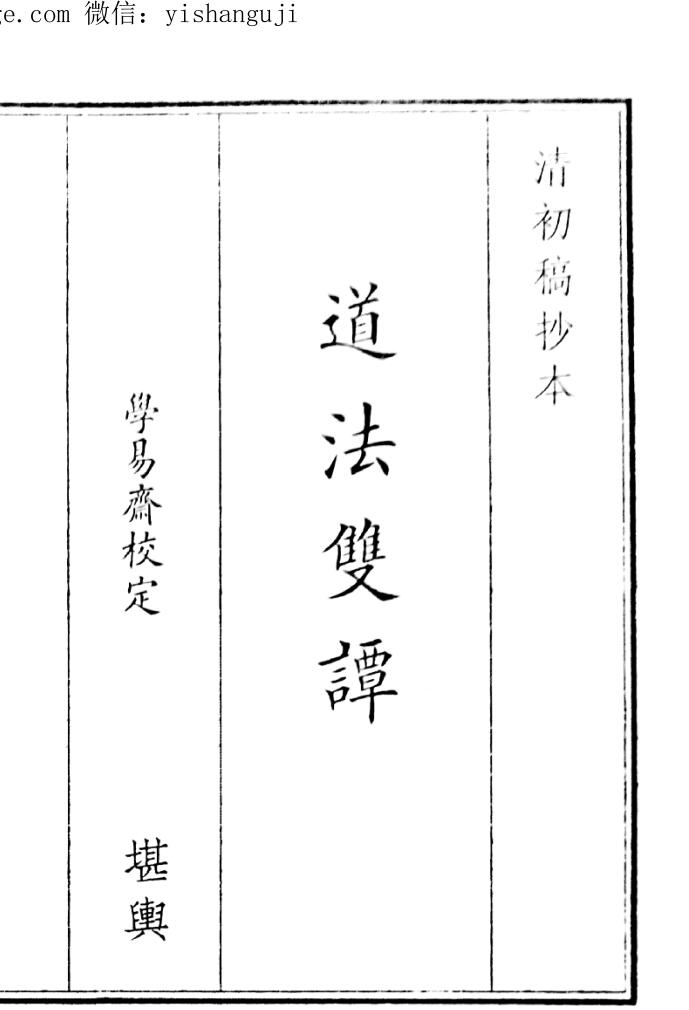 ge.com 微信：yishanguji
清初稿抄本
道法雙譚
學易齋校定
堪輿